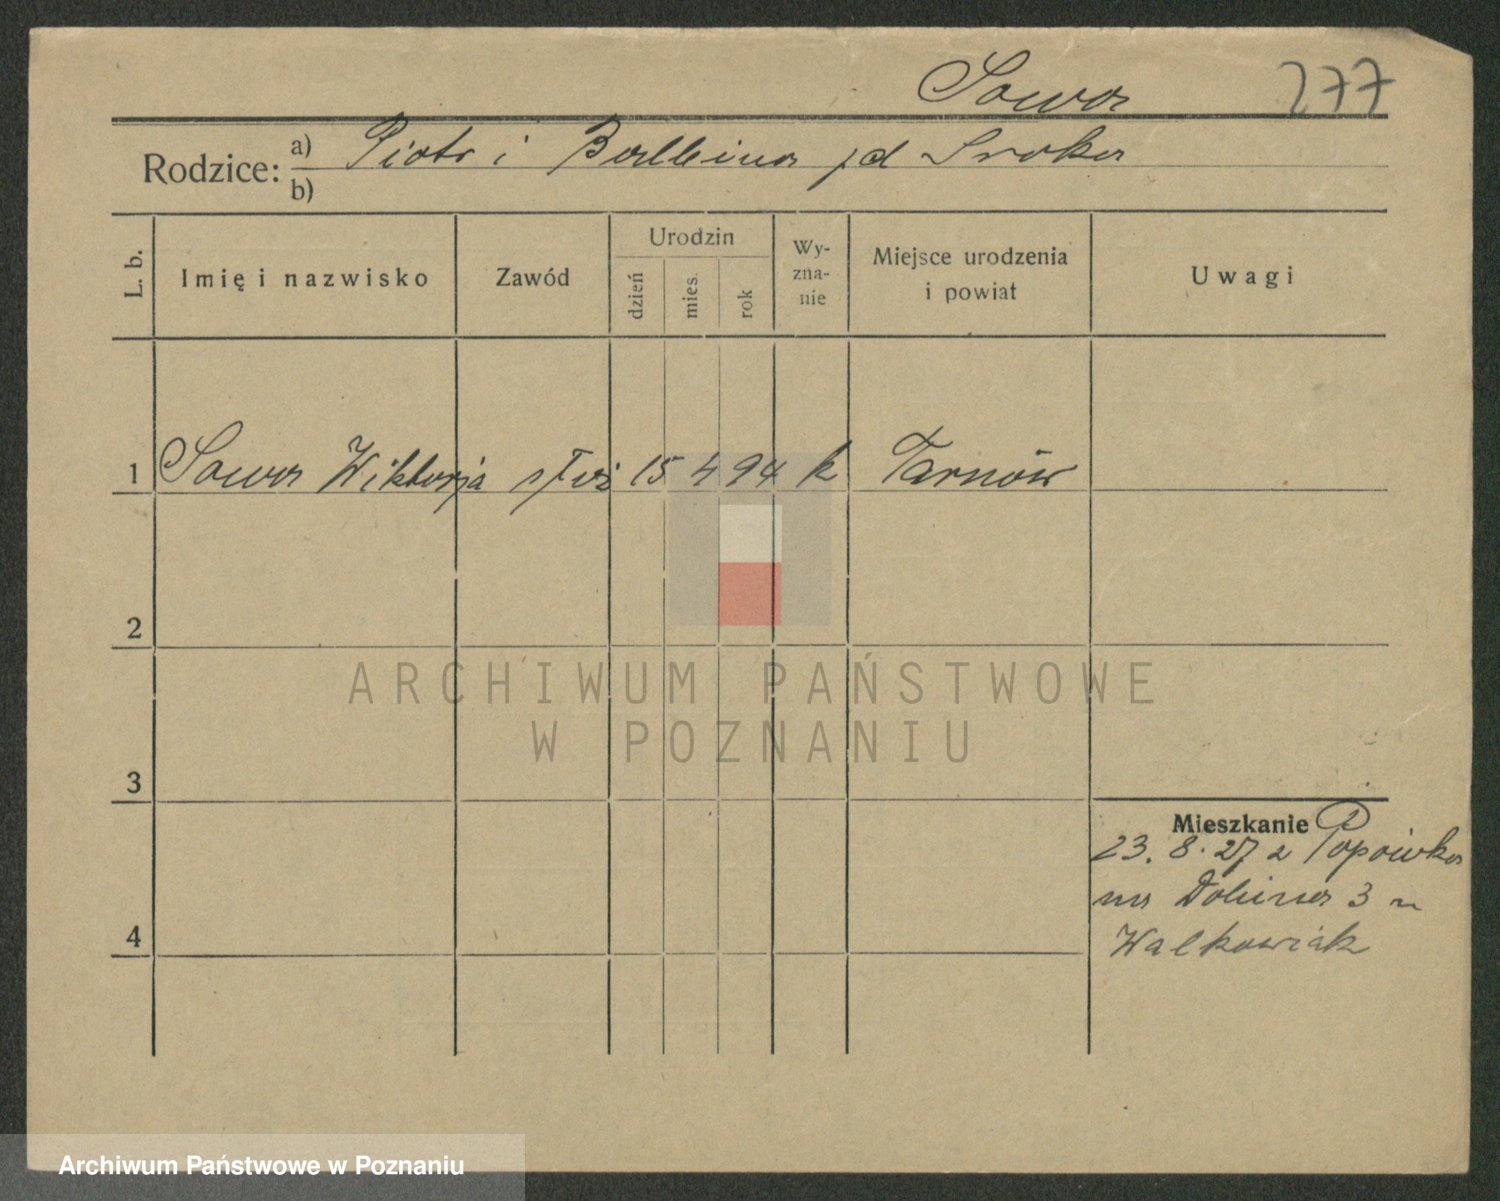 Sowa 277
Rodzice: a) Piotr i Balbina zd Sroka
b)
L. b. Imię i nazwisko Zawód Urodzin dzień mies. rok Wy-zna-nie Miejsce urodzenia i powiat Uwagi
1 Sowa Wiktorja służ 15 4 94 k Tarnów
2
ARCHIWUM PAŃSTWOWE
W POZNANIU
3
Mieszkanie
23. 8. 27 z Popówka
na Dolina 3 u
4 Walkowiak
Archiwum Państwowe w Poznaniu